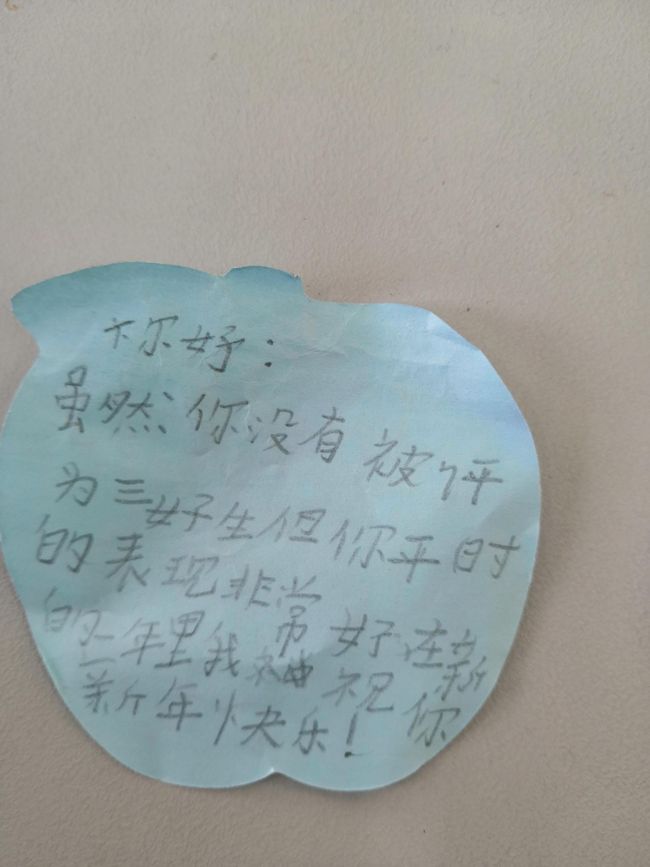 你好：
虽然你没有被评
为三好生但你平时
的表现非常好在新
的一年里我神祝你
新年快乐！